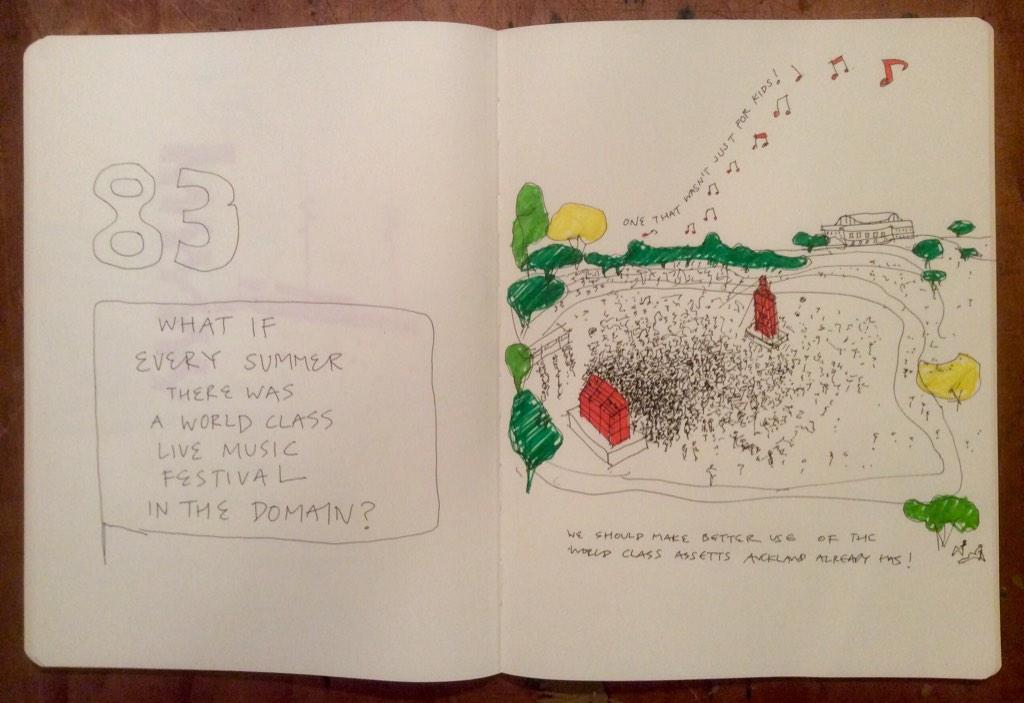 83
WHAT IF
EVERY SUMMER
THERE WAS
A WORLD CLASS
LIVE MUSIC
FESTIVAL
IN THE DOMAIN?
ONE THAT WASN'T JUST FOR KIDS!
WE SHOULD MAKE BETTER USE OF THE
WORLD CLASS ASSETTS AUCKLAND ALREADY HAS!